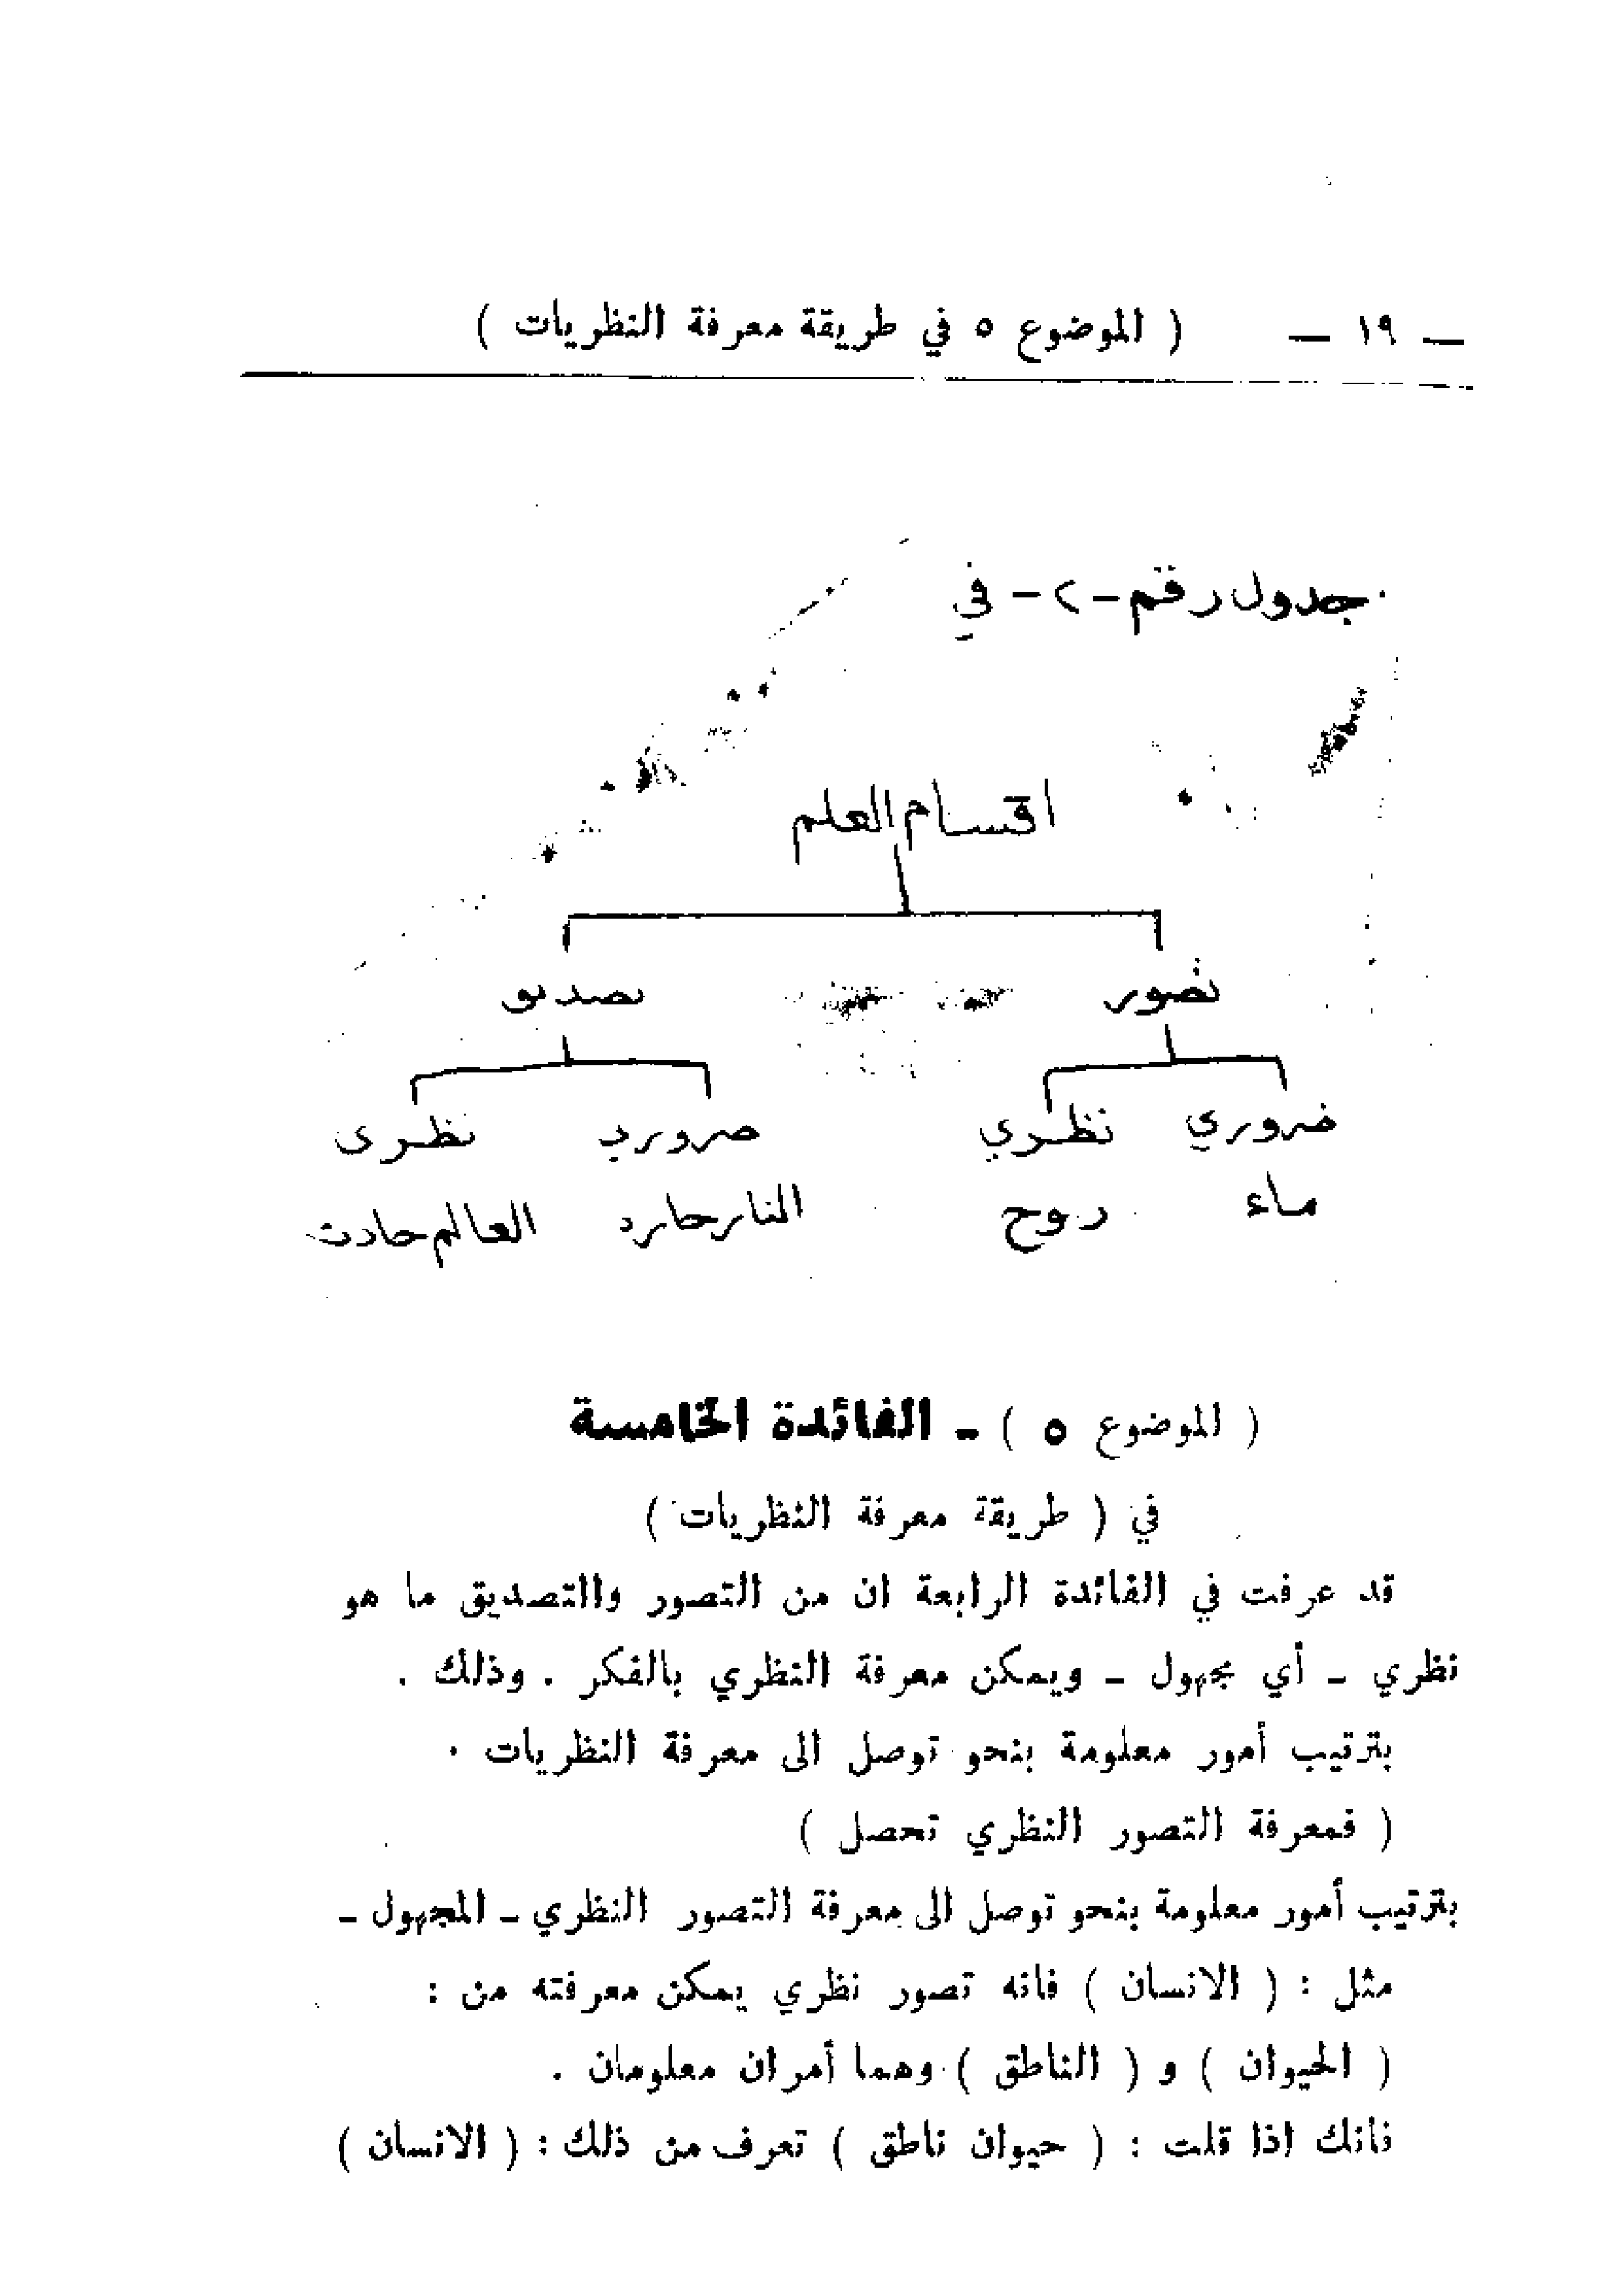 — ١٩ — ( الموضوع ٥ في طريقة معرفة النظريات )
جدول رقم - ٢ - في
اقسام العلم
تصور تصديق
ضروري نظري ضروري نظري
ماء روح النار حارة العالم حادث
( الموضوع ٥ ) - الفائدة الخامسة
في ( طريقة معرفة النظريات )
قد عرفت في الفائدة الرابعة ان من التصور والتصديق ما هو
نظري - أي مجهول - ويمكن معرفة النظري بالفكر . وذلك .
بترتيب أمور معلومة بنحو توصل الى معرفة النظريات .
( فمعرفة التصور النظري تحصل )
بترتيب أمور معلومة بنحو توصل الى معرفة التصور النظري - المجهول -
مثل : ( الانسان ) فانه تصور نظري يمكن معرفته من :
( الحيوان ) و ( الناطق ) وهما أمران معلومان .
فانك اذا قلت : ( حيوان ناطق ) تعرف من ذلك : ( الانسان )